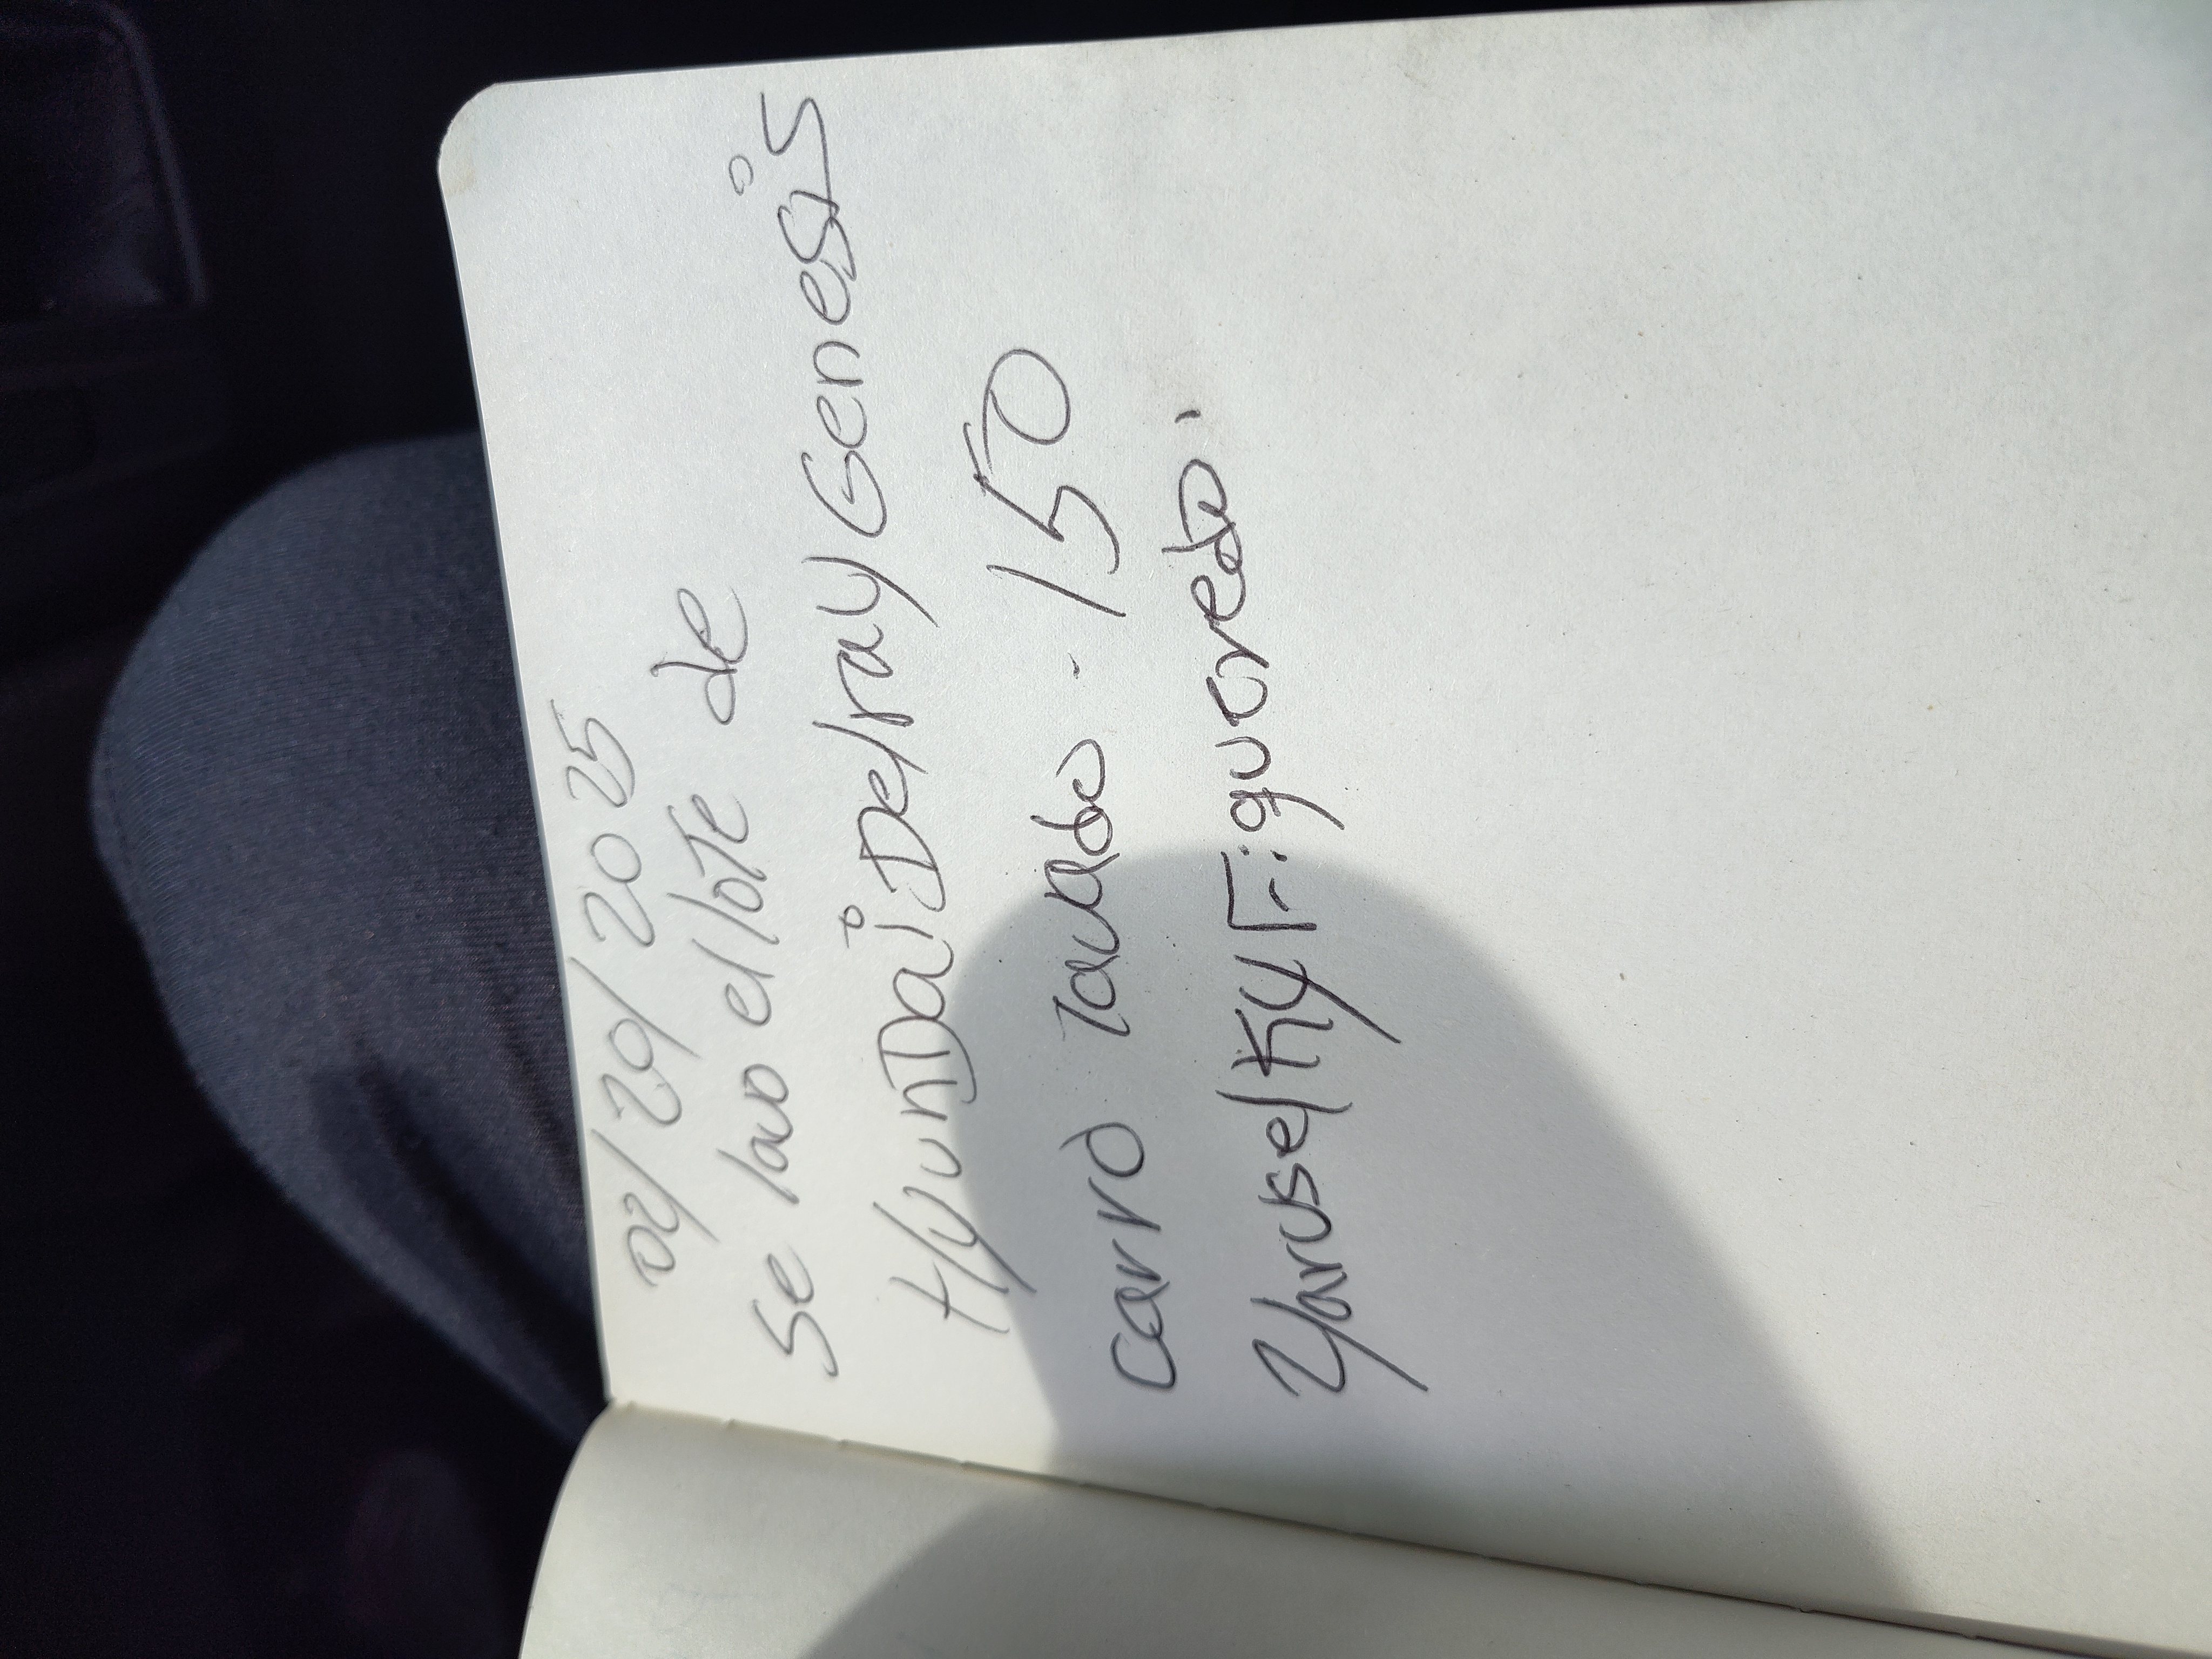 02/20/2025
Se lavo el lote de
HyunDai Delray Genesis
carro lavado. 150
Yarusel Ky Figuoredo.